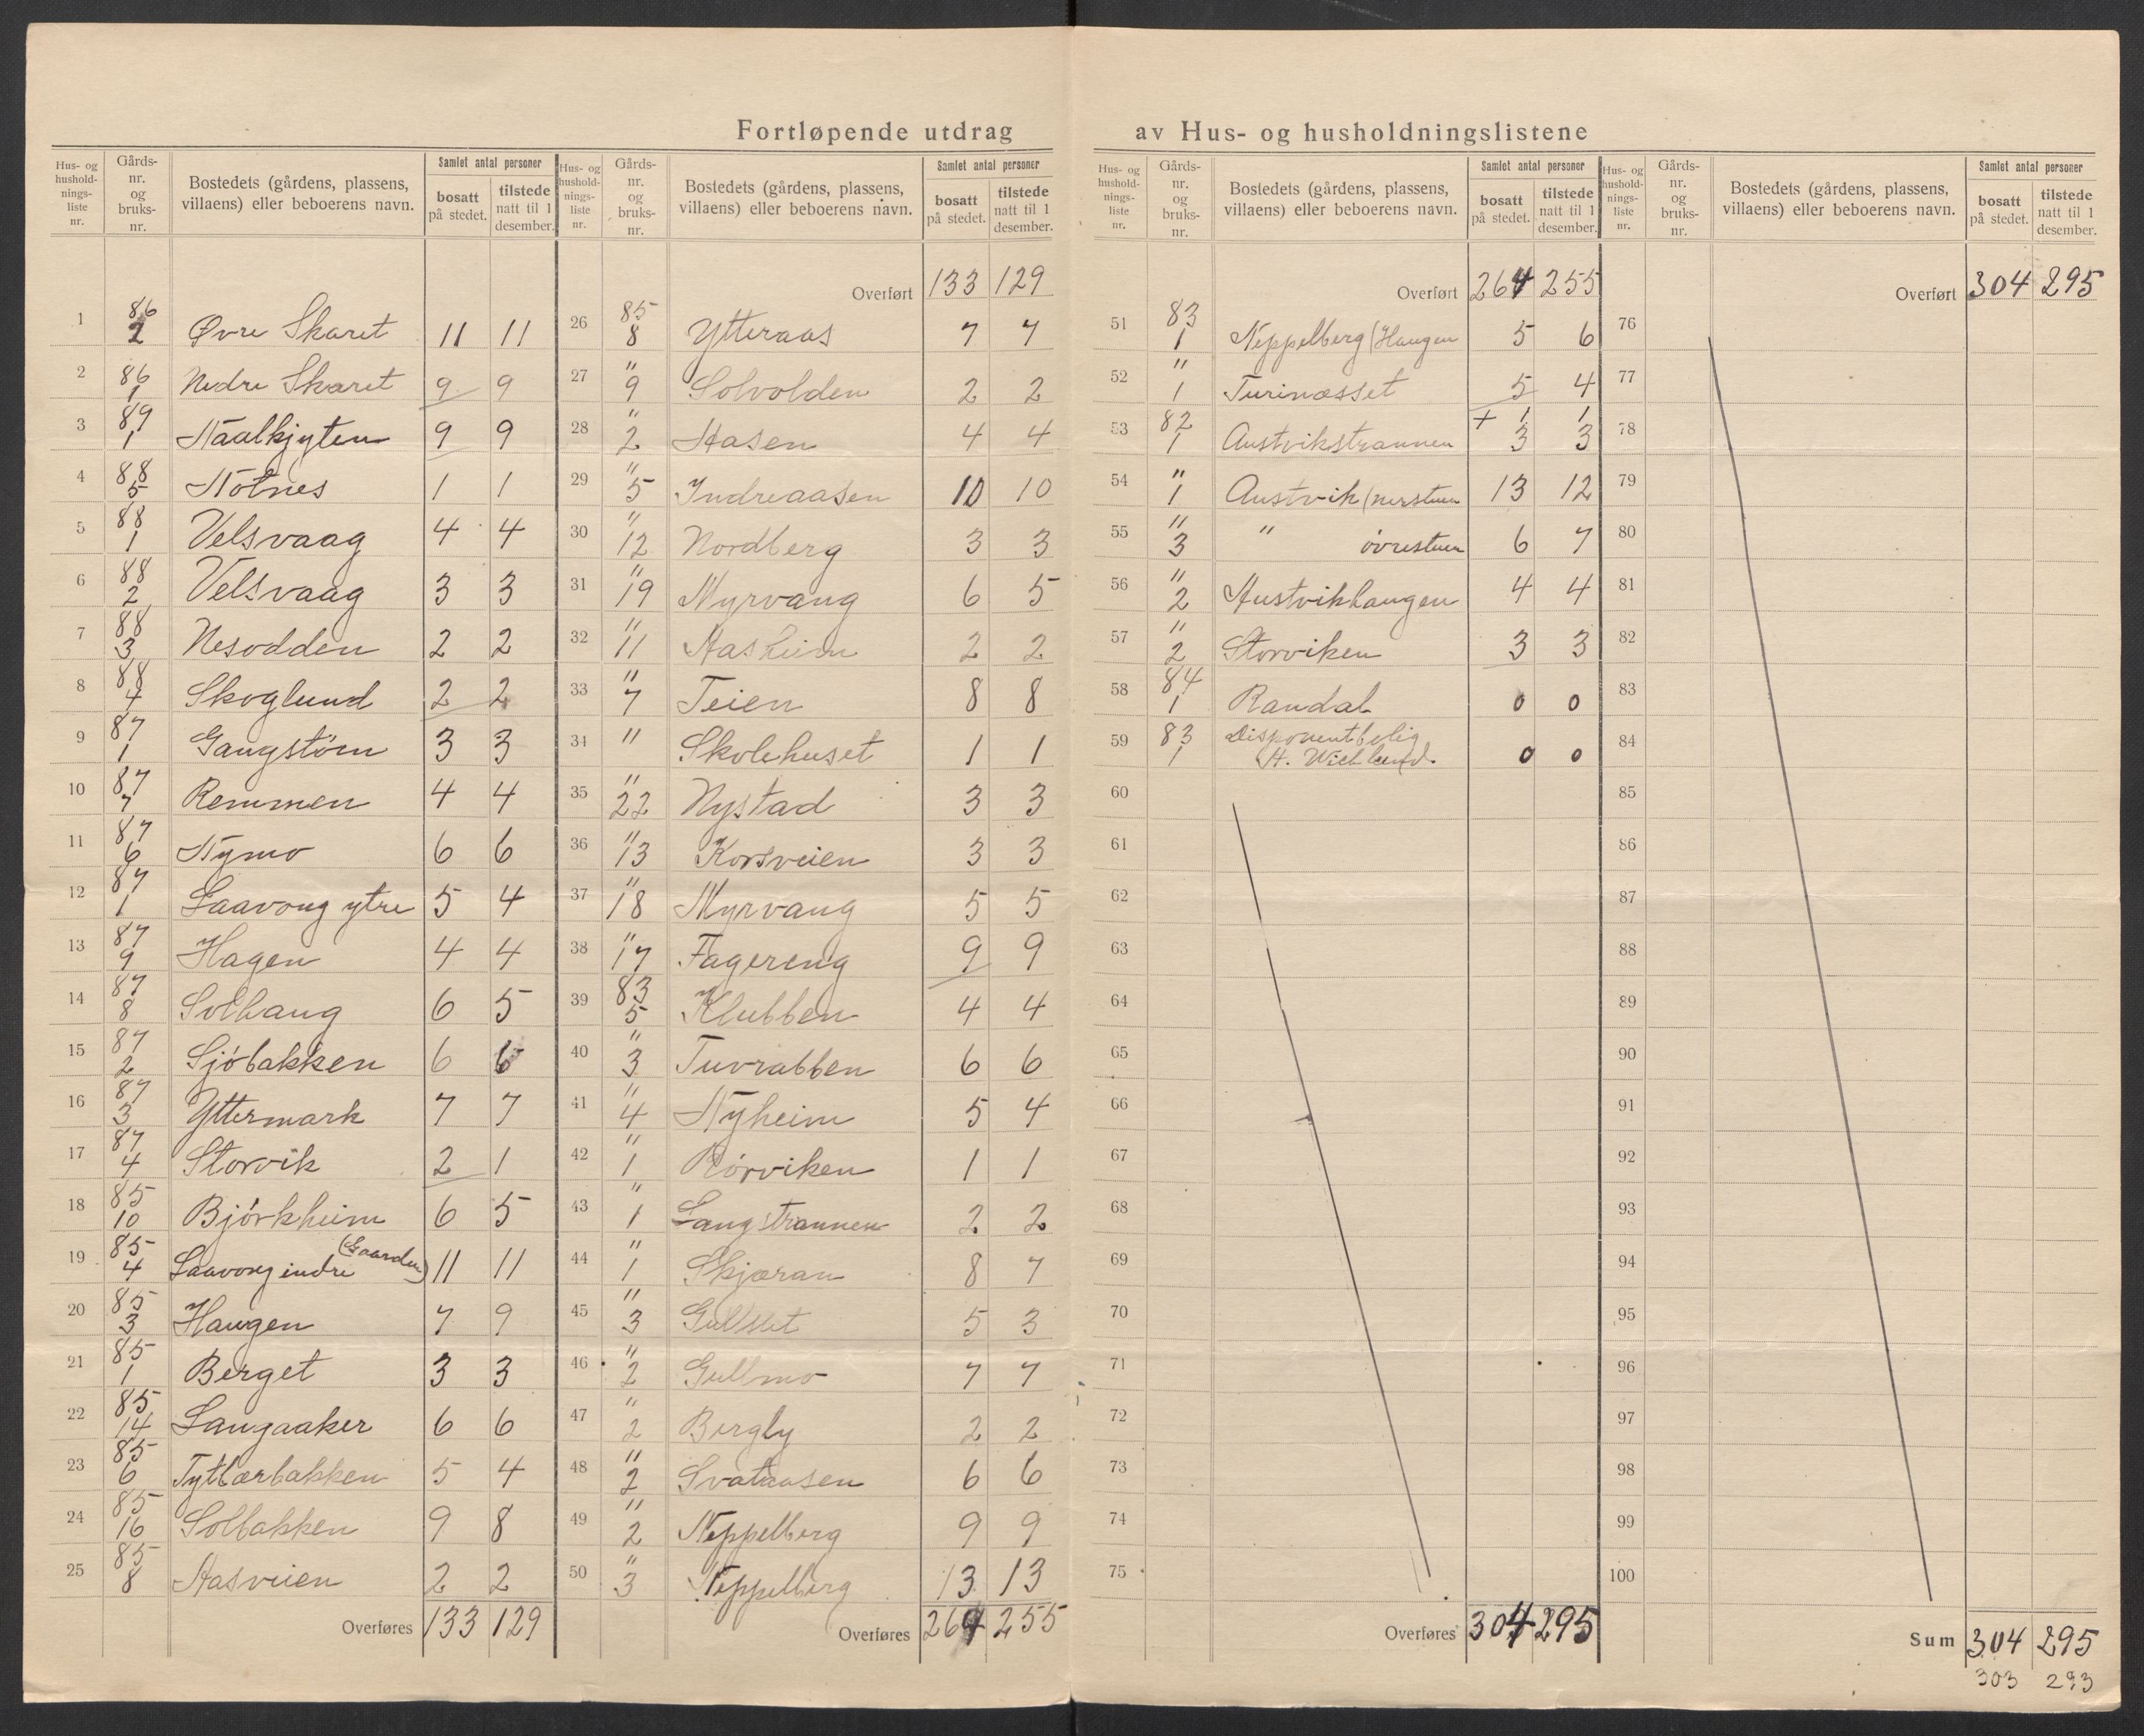 Fortløpende utdrag av Hus- og husholdningslistene
Hus- og husholdnings-liste nr. Gårds-nr. og bruks-nr. Bostedets (gårdens, plassens, villaens) eller beboerens navn. Samlet antal personer bosatt på stedet. tilstede natt til 1 desember.
1 86 2 Øvre Skaret 11 11
2 86 1 Nedre Skaret 9 9
3 89 1 Staalkjyten 9 9
4 88 5 Notnes 1 1
5 88 1 Velsvaag 4 4
6 88 2 Velsvaag 3 3
7 88 3 Nesodden 2 2
8 88 4 Skoglund 2 2
9 87 1 Gangstøen 3 3
10 87 7 Remmen 4 4
11 87 6 Nymo 6 6
12 87 1 Laavong ytre 5 4
13 87 9 Hagen 4 4
14 87 8 Solhaug 6 5
15 87 2 Sjöbakken 6 6
16 87 3 Yttermark 7 7
17 87 4 Storvik 2 1
18 85 10 Björkheim 6 5
19 85 4 Laavong indre (Gaarden) 11 11
20 85 3 Haugen 7 9
21 85 1 Berget 3 3
22 85 14 Langaaker 6 6
23 85 6 Tytbærbakken 5 4
24 85 16 Solbakken 9 8
25 85 8 Aasveien 2 2
Overføres 133 129
Hus- og husholdnings-liste nr. Gårds-nr. og bruks-nr. Bostedets (gårdens, plassens, villaens) eller beboerens navn. Samlet antal personer bosatt på stedet. tilstede natt til 1 desember.
Overført 133 129
26 85 8 Ytteraas 7 7
27 " 9 Solvolden 2 2
28 " 2 Aasen 4 4
29 " 5 Indreaasen 10 10
30 " 12 Nordberg 3 3
31 " 19 Myrvang 6 5
32 " 11 Aasheim 2 2
33 " 7 Teien 8 8
34 " Skolehuset 1 1
35 " 22 Nystad 3 3
36 " 13 Korsveien 3 3
37 " 18 Myrvang 5 5
38 " 17 Fagereng 9 9
39 83 5 Klubben 4 4
40 " 3 Tuvrabben 6 6
41 " 4 Nyheim 5 4
42 " 1 Rörviken 1 1
43 " 1 Langstrannen 2 2
44 " 1 Skjæran 8 7
45 " 3 Gullset 5 3
46 " 2 Gullmo 7 7
47 " 2 Bergly 2 2
48 " 2 Svataasen 6 6
49 " 2 Neppelberg 9 9
50 " 3 Neppelberg 13 13
Overføres 264 255
Hus- og husholdnings-liste nr. Gårds-nr. og bruks-nr. Bostedets (gårdens, plassens, villaens) eller beboerens navn. Samlet antal personer bosatt på stedet. tilstede natt til 1 desember.
Overført 264 255
51 83 1 Neppelberg (Haugen 5 6
52 " 1 Turinæsset 5 4
+ 1 1
53 82 1 Austvikstrannen 3 3
54 " 1 Austvik (nerstuen 13 12
55 " 3 " övrestuen 6 7
56 " 2 Austvikhaugen 4 4
57 " 2 Storviken 3 3
58 84 1 Randal 0 0
59 83 1 Disponentbolig
H. Wichlund. 0 0
60
61
62
63
64
65
66
67
68
69
70
71
72
73
74
75
Overføres 304 295
Hus- og husholdnings-liste nr. Gårds-nr. og bruks-nr. Bostedets (gårdens, plassens, villaens) eller beboerens navn. Samlet antal personer bosatt på stedet. tilstede natt til 1 desember.
Overført 304 295
76
77
78
79
80
81
82
83
84
85
86
87
88
89
90
91
92
93
94
95
96
97
98
99
100
Sum 304 295
303 293